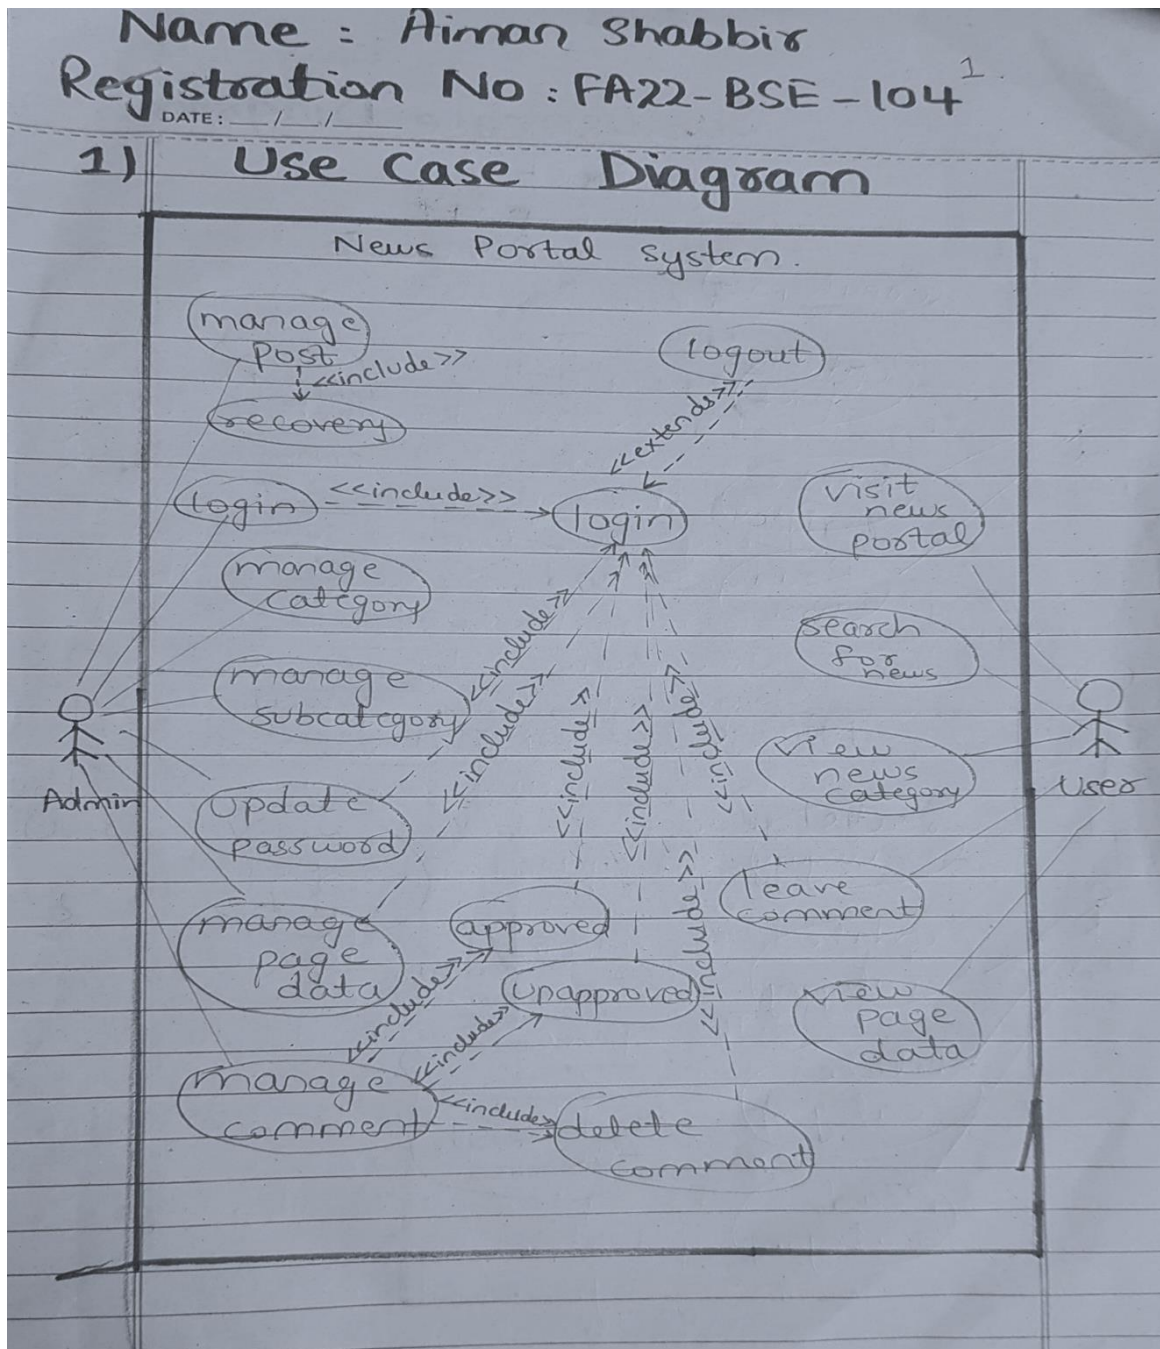 Name : Aiman Shabbir
Registration No : FA22-BSE-104
1.
DATE: __/__/____
1) Use Case Diagram
News Portal System.
manage
post
<<include>>
recovery
logout
<<extends>>
login
<<include>>
login
visit
news
portal
manage
category
search
for
news
manage
subcategory
<<include>>
<<include>>
<<include>>
<<include>>
<<include>>
<<include>>
view
news
category
Admin
User
update
password
leave
comment
manage
page
data
approved
unapproved
<<include>>
<<include>>
view
page
data
manage
comment
<<include>>
delete
comment